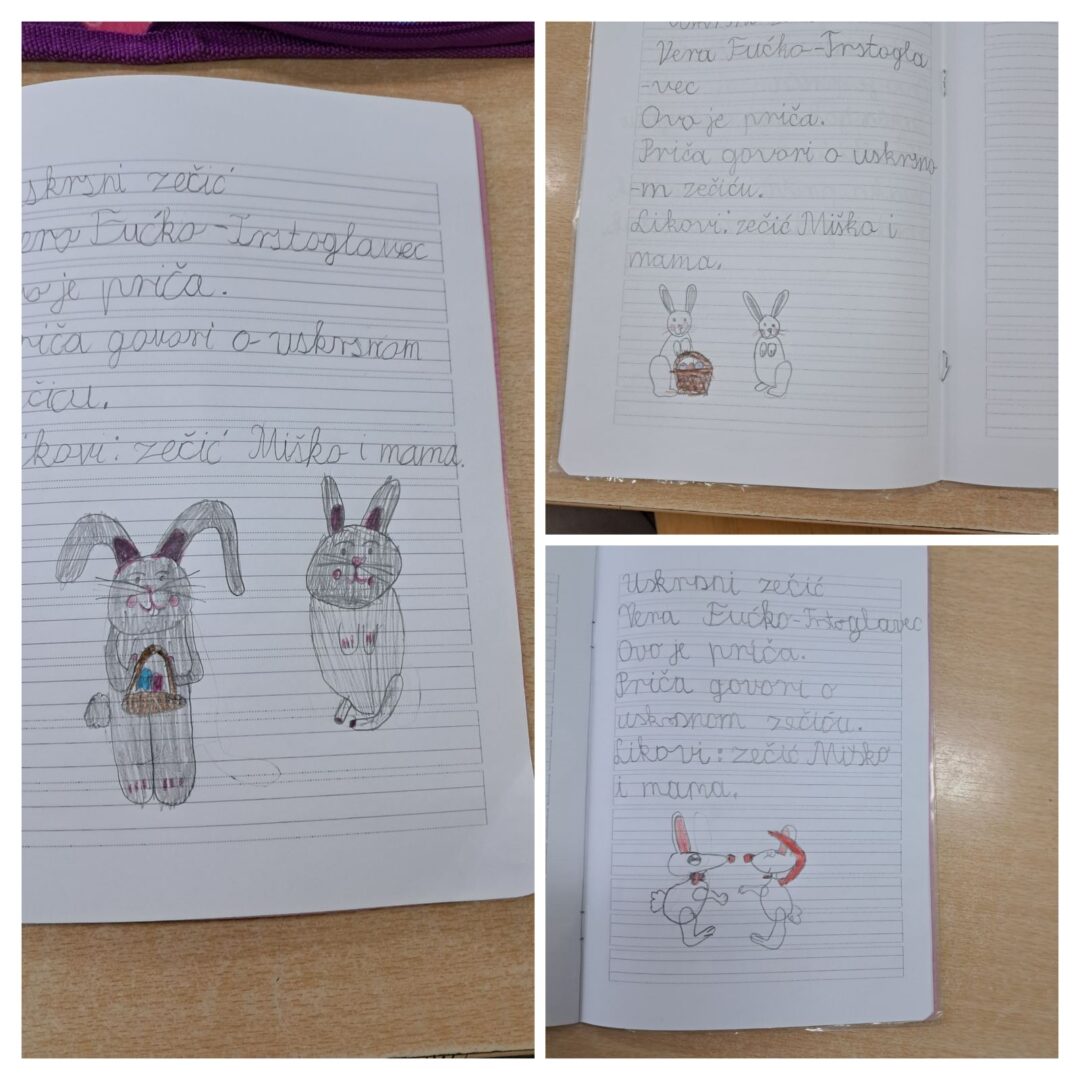 skrsni zečić
era Fućko-Trstoglavec
o je priča.
riča govori o uskrsnom
čiću.
ikovi: zečić Miško i mama.
Vera Fućko-Trstogla
-vec
Ovo je priča.
Priča govori o uskrsno
-m zečiću.
Likovi: zečić Miško i
mama.
Uskrsni zečić
Vera Fućko-Trstoglavec
Ovo je priča.
Priča govori o
uskrsnom zečiću.
Likovi: zečić Miško
i mama.